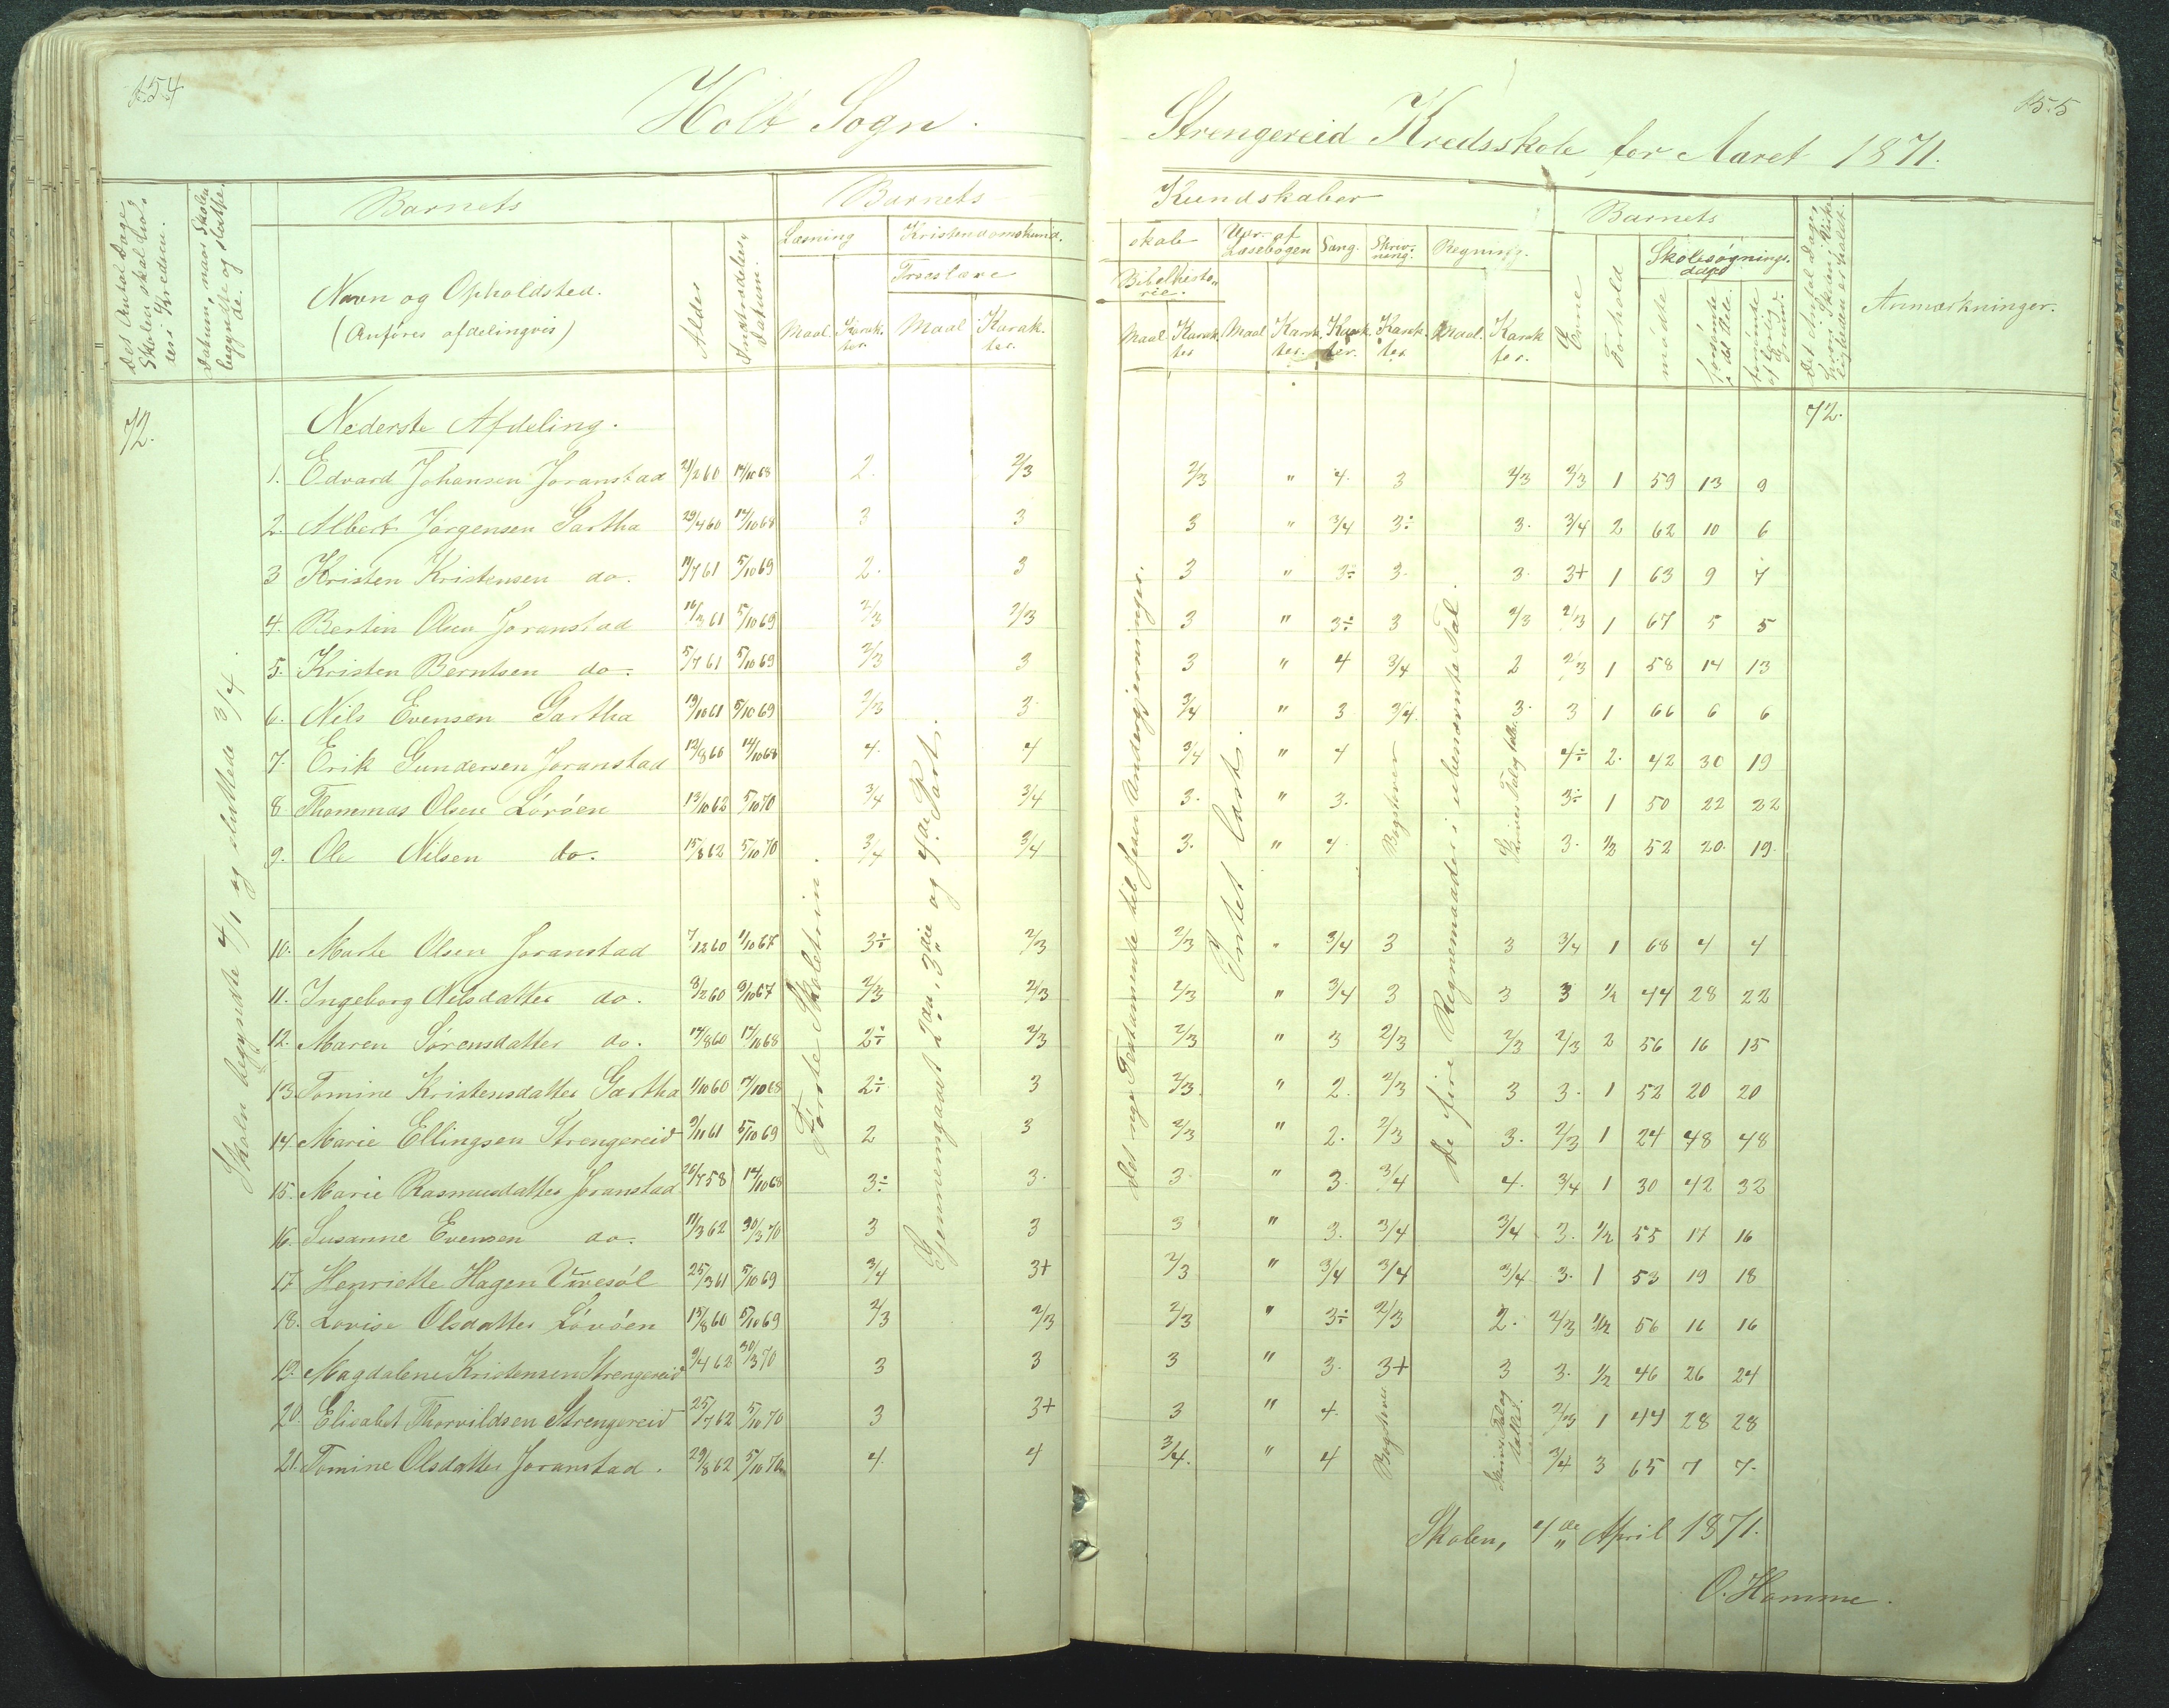 154
Holt Sogn.
Det Antal Dage Skolen skal holdes i Kredsen.
Datum, naar Skolen begyndte og sluttede.
Barnets
Navn og Opholdsted.
(Anføres afdelingvis)
Alder
Indtrædelses Datum.
Barnets
Læsning
Maal
Karakter.
Kristendomskund.
Troeslære
Maal
Karakter.
72.
Skolen begyndte 4/1 og sluttede 3/4.
Første Skoletrin.
Gjennemgaaet 2den, 3die og 4de Part.
Nederste Afdeling.
1. Edvard Johansen Joranstad 21/2 60 14/10 68 2. 2/3
2. Albert Jørgensen Gartha 29/4 60 14/10 68 3 3
3 Kristen Kristensen do. 11/7 61 5/10 69 2. 3
4. Bertin Olsen Joranstad 16/3 61 5/10 69 2/3 2/3
5. Kristen Berntsen do. 5/7 61 5/10 69 2/3 3
6. Nils Evensen Gartha 19/10 61 5/10 69 2/3 3.
7. Erik Gundersen Joranstad 12/8 60 14/10 68 4. 4
8 Thommas Olsen Lövöen 13/10 62 5/10 70 3/4 3/4
9. Ole Nilsen do. 15/8 62 5/10 70 3/4 3/4
10. Marte Olsen Joranstad 7/12 60 1/10 67 3÷ 2/3
11. Ingeborg Nilsdatter do. 8/2 60 9/10 67 2/3 2/3
12. Maren Sörensdatter do. 14/8 60 14/10 68 2÷ 2/3
13. Tomine Kristensdatter Gartha 1/10 60 14/10 68 2÷ 3
14. Marie Ellingsen Strengereid 9/11 61 5/10 69 2 3
15. Marie Rasmusdatter Joranstad 26/7 58 14/10 68 3÷ 3.
16. Susanne Evensen do. 11/3 62 30/3 70 3 3
17. Henriette Hagen 25/3 61 5/10 69 3/4 3+
18. Lovise Olsdatter Lövöen 15/8 60 5/10 69 2/3 2/3
19. Magdalene Kristensen Strengereid 9/4 62 30/3 70 3 3
20. Elisabet Thorvildsen Strengereid 25/7 62 5/10 70 3 3+
21. Tomine Olsdatter Joranstad. 29/8 62 5/10 70 4. 4
155
Strengereid Kredsskole for Aaret 1871.
Kundskaber
skab
Bibelhistorie.
Maal
Karakter
Udv. af Læsebogen
Maal
Karakter.
Sang.
Karakter.
Skrivning.
Karakter
Regning.
Maal.
Karakter.
Barnets
Evne
Forhold
Skolesøgningsdage
mødte
forsømte i det Hele.
forsømte af lovlig Grund.
Anmærkninger.
72.
Det nye Testamente til Jesu Undergjerninger.
Intet læst.
De fire Regnemaader i ubenævnte Tal.
2/3 " 4. 3 2/3 2/3 1 59 13 9
3 " 3/4 3÷ 3. 3/4 2 62 10 6
3 " 3÷ 3. 3. 3+ 1 63 9 7
3 " 3÷ 3 2/3 2/3 1 67 5 5
3 " 4 3/4 2 2/3 1 58 14 13
3/4 " 3 3/4. 3. 3 1 66 6 6
3/4 " 4 Bogstaver Skriver Tal og tæller. 4÷ 2. 42 30 19
3. " 3. 3÷ 1 50 22 22
3. " 4. 3. 1/2 52 20. 19.
2/3 " 3/4 3 3 3/4 1 68 4 4
2/3 " 3/4 3 3 3 1/2 44 28 22
2/3 " 3 2/3 2/3 2/3 2 56 16 15
2/3. " 2. 2/3 3 3. 1 52 20 20
2/3 " 2. 2/3 3. 2/3 1 24 48 48
3. " 3. 3/4 4. 3/4 1 30 42 32
3 " 3. 3/4 3/4 3. 1/2 55 17 16
2/3 " 3/4 3/4 3/4 3. 1 53 19 18
2/3 " 3÷ 2/3 2. 2/3 1/2 56 16 16
3 " 3. 3+ 3 3. 1/2 46 26 24
3 " 4. Bogstaver Skriver Tal og tæller. 2/3 1 44 28 28
3/4. " 4 3/4 3 65 7 7.
Skolen, 4de April 1871.
O. Hamme.